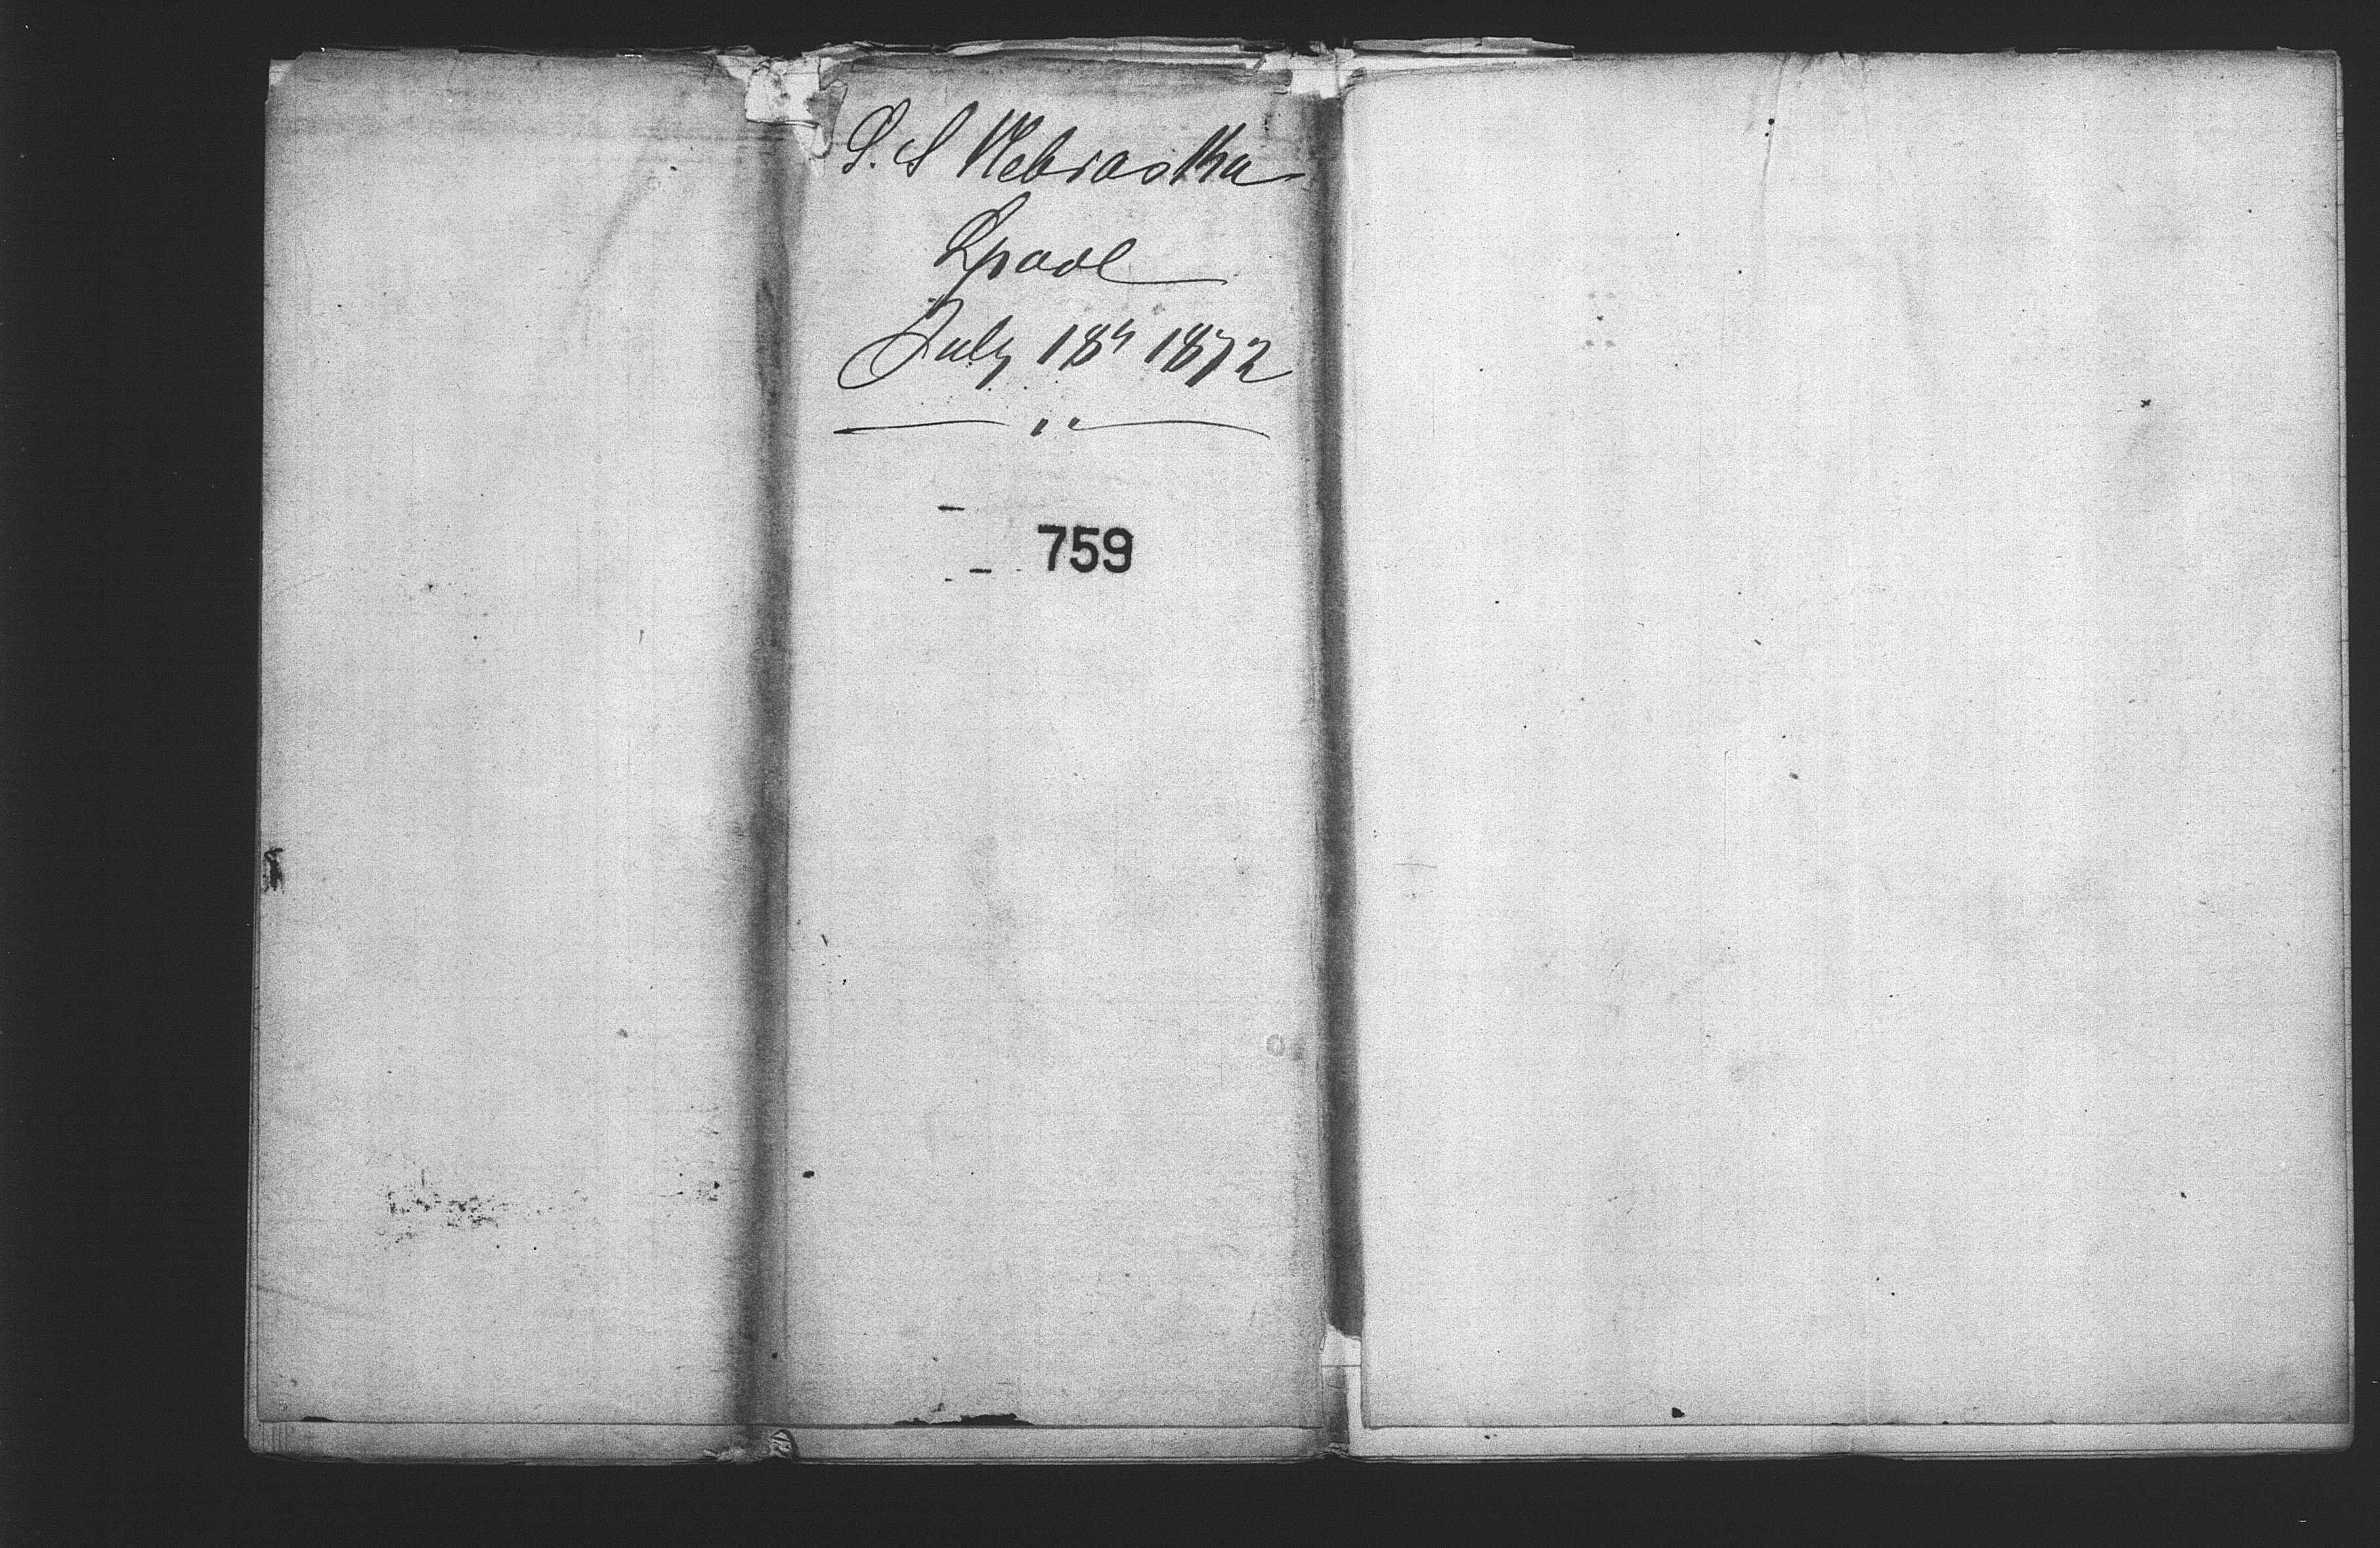 S. S Nebraska
Lpool
July 18th 1872
759